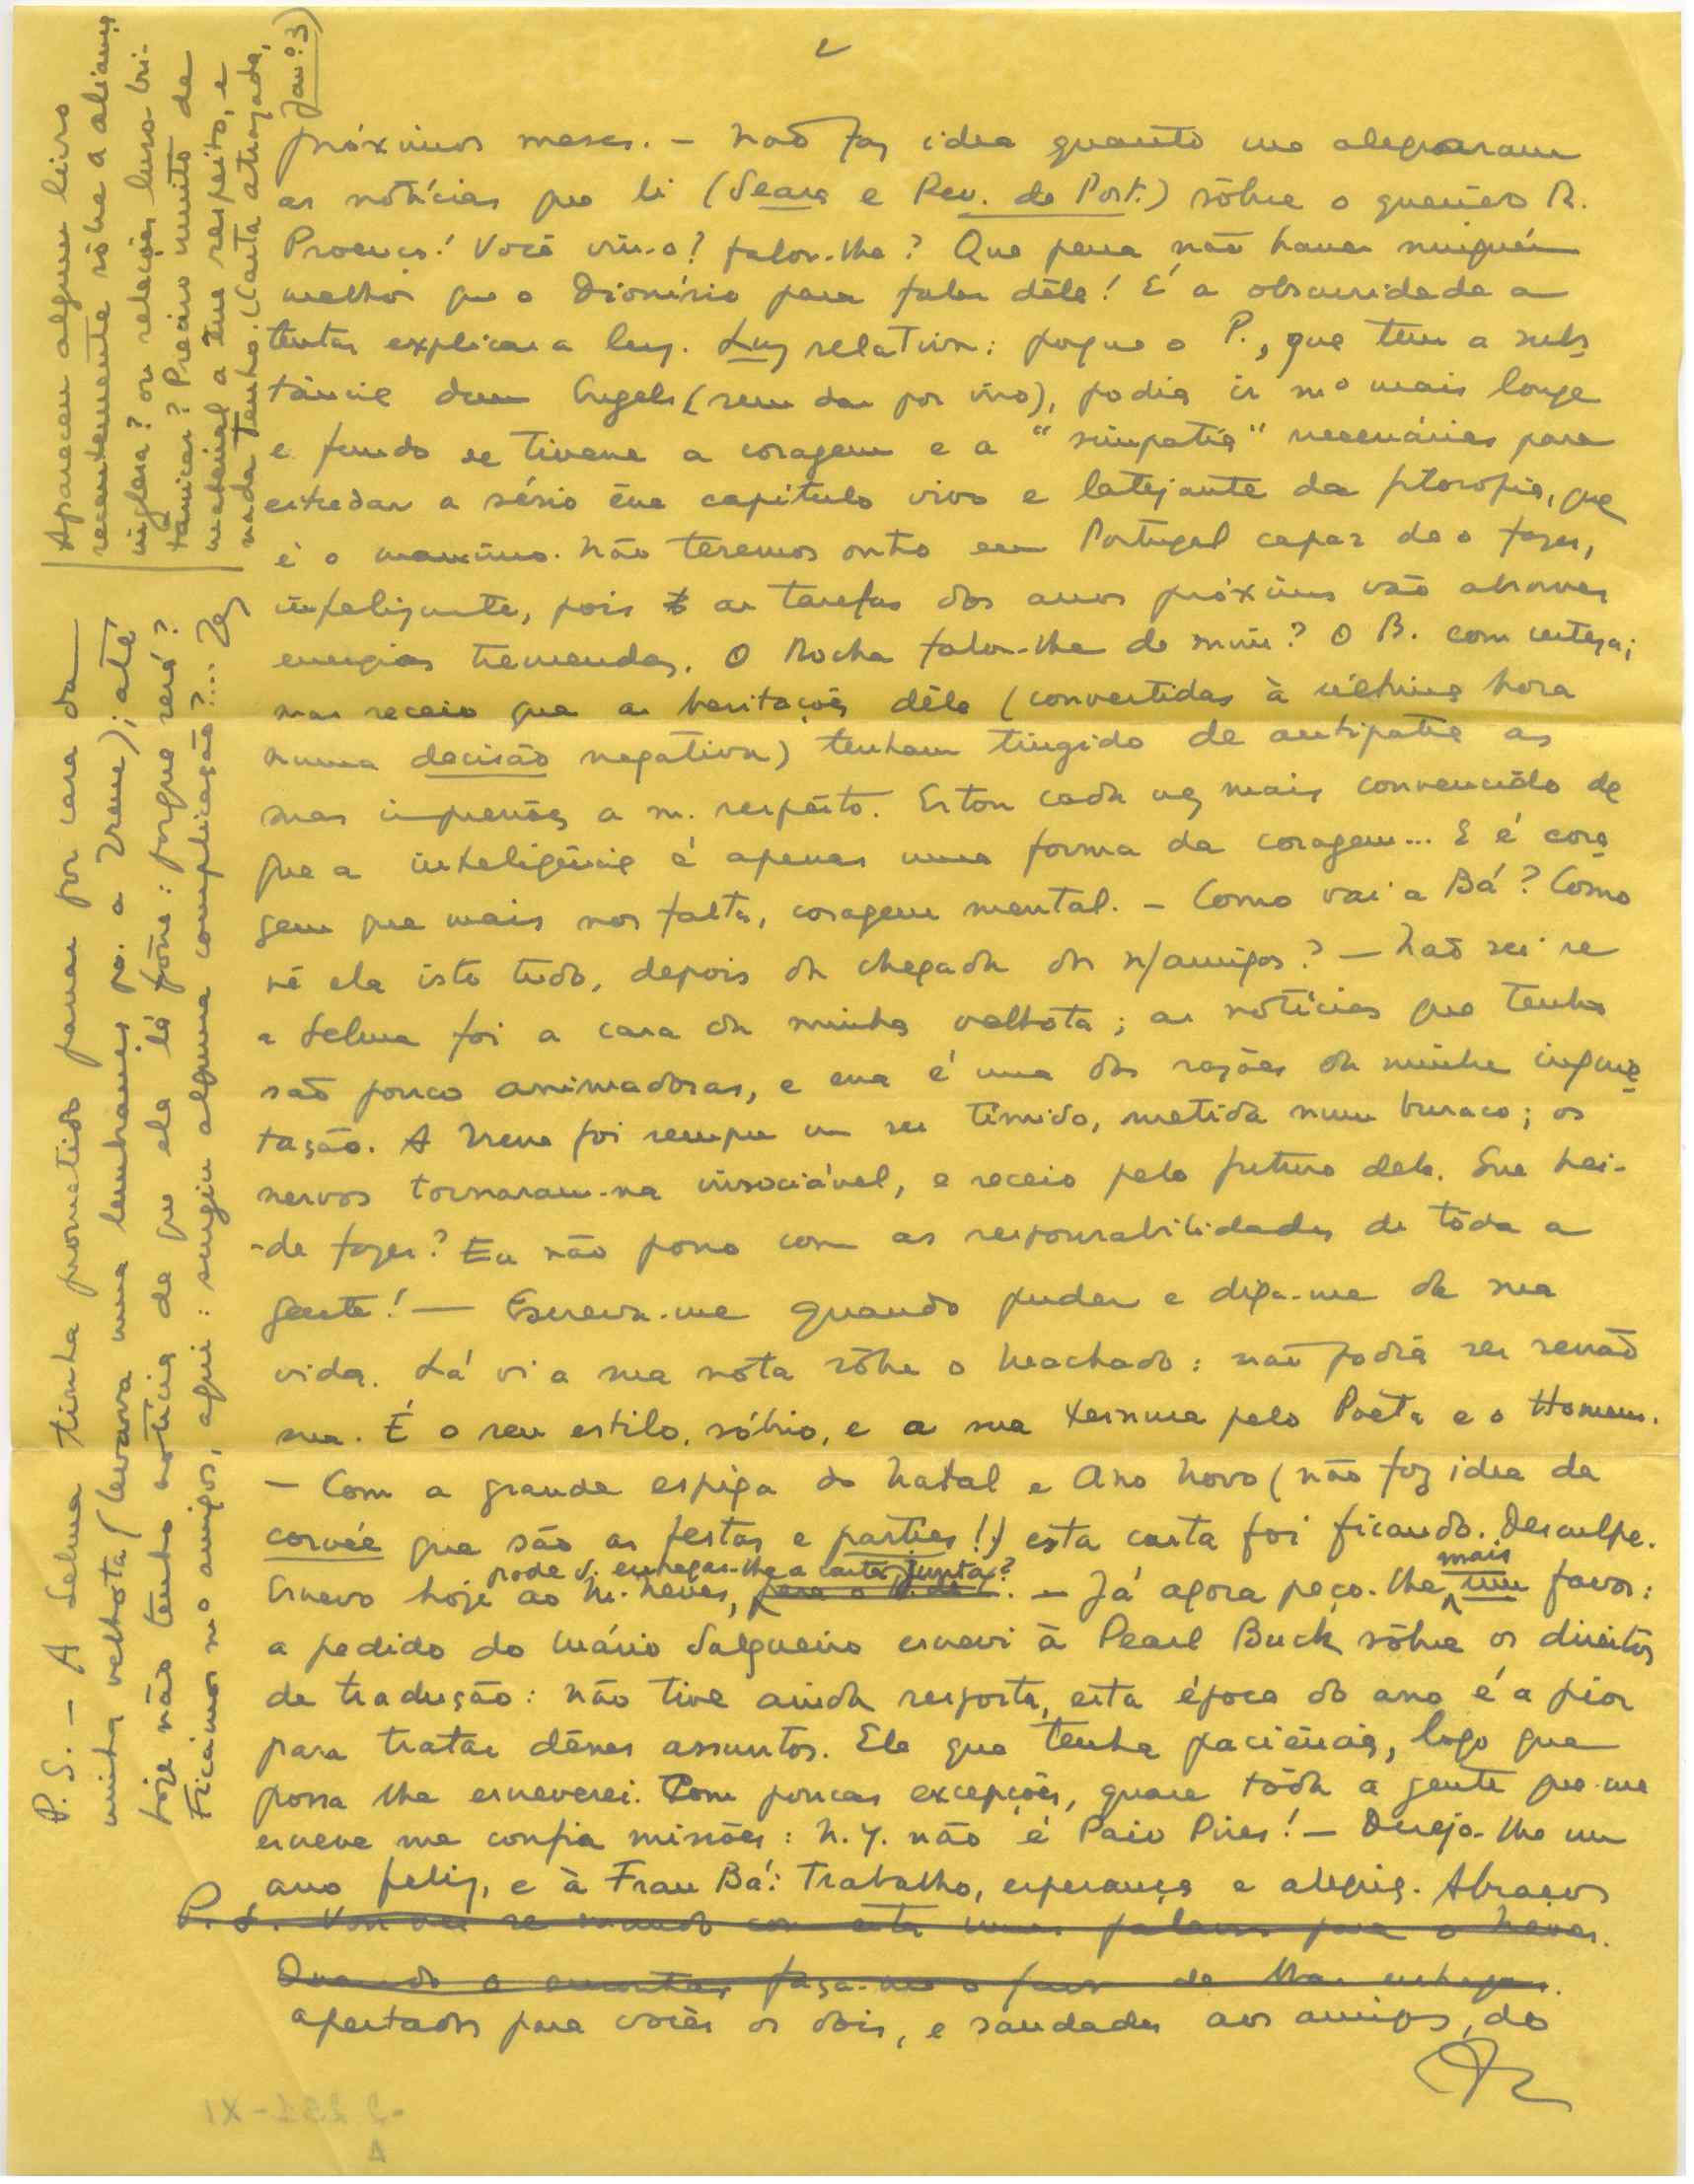 2
próximos meses. – Não faz idea quanto me alegraram
as notícias que li (Seara e Rev. de Port.) sôbre o querido R.
Proença! Você viu-o? falou-lhe? Que pena não haver ninguém
melhor que o Dionísio para falar dêle! É a obscuridade a
tentar explicar a luz. Luz relativa: porque o P., que tem a subs
tância dum Engels (sem dar por isso), podia ir mº mais longe
e fundo se tivesse a coragem e a "simpatia" necessárias para
estudar a sério êsse capítulo vivo e latejante da filosofia, que
é o marxismo. Não teremos outro em Portugal capaz de o fazer,
infelizmente, pois as tarefas dos anos próximos vão absorver
energias tremendas. O Rocha falou-lhe de mim? O B. com certeza;
mas receio que as hesitações dêle (convertidas à última hora
numa decisão negativa) tenham tingido de antipatia as
suas impressões a m. respeito. Estou cada vez mais convencido de
que a inteligência é apenas uma forma da coragem... E é cora
gem que mais nos falta, coragem mental. – Como vai a Bá? Como
vê ela isto tudo, depois da chegada dos n/amigos? – Não sei se
a Selma foi a casa da minha velhota; as notícias que tenho
são pouco animadoras, e essa é uma das razões da minha inquie
tação. A Irene foi sempre um ser tímido, metida num buraco; os
nervos tornaram-na insociável, e receio pelo futuro dela. Que hei-
-de fazer? Eu não posso com as responsabilidades de tôda a
gente! – Escreva-me quando puder e diga-me da sua
vida. Lá vi a sua nota sôbre o Machado: não podia ser senão
sua. É o seu estilo, sóbrio, e a sua ternura pelo Poeta e o Homem.
– Com a grande espiga do Natal e Ano Novo (não faz idea da
corvée que são as festas e parties!) esta carta foi ficando. Desculpe.
pode V. entregar-lhe a carta junta?
Escrevo hoje ao M. Neves, . – Já agora peço-lhe mais um favor:
a pedido do Mário Salgueiro escrevi à Pearl Buck sôbre os direitos
de tradução: não tive ainda resposta, esta época do ano é a pior
para tratar dêsses assuntos. Ele que tenha paciência, logo que
possa lhe escreverei. Com poucas excepções, quase tôda a gente que me
escreve me confia missões: N.Y. não é Paio Pires! – Desejo-lhe um
ano feliz, e à Frau Bá: Trabalho, esperança e alegria. Abraços
P.S. Von ver se mando com esta umas palavras para o Neves.
Quando o encontrar faça-me o favor de lhas entregar.
apertados para vocês os dois, e saudades aos amigos, do
P.S. – A Selma tinha prometido passar por casa da
minha velhota (levava uma lembrança pª. a Irene); até
hoje não tenho notícia de que ela lá fôsse: porque será?
Ficamos no amigos, aqui: surgiu alguma complicação?...
Apareceu algum livro
recentemente sôbre a aliança
inglesa? ou relações luso-bri-
tânicas? Preciso muito de
material a êsse respeito, e
nada tenho. (Carta atrasada,
Janº. 3)